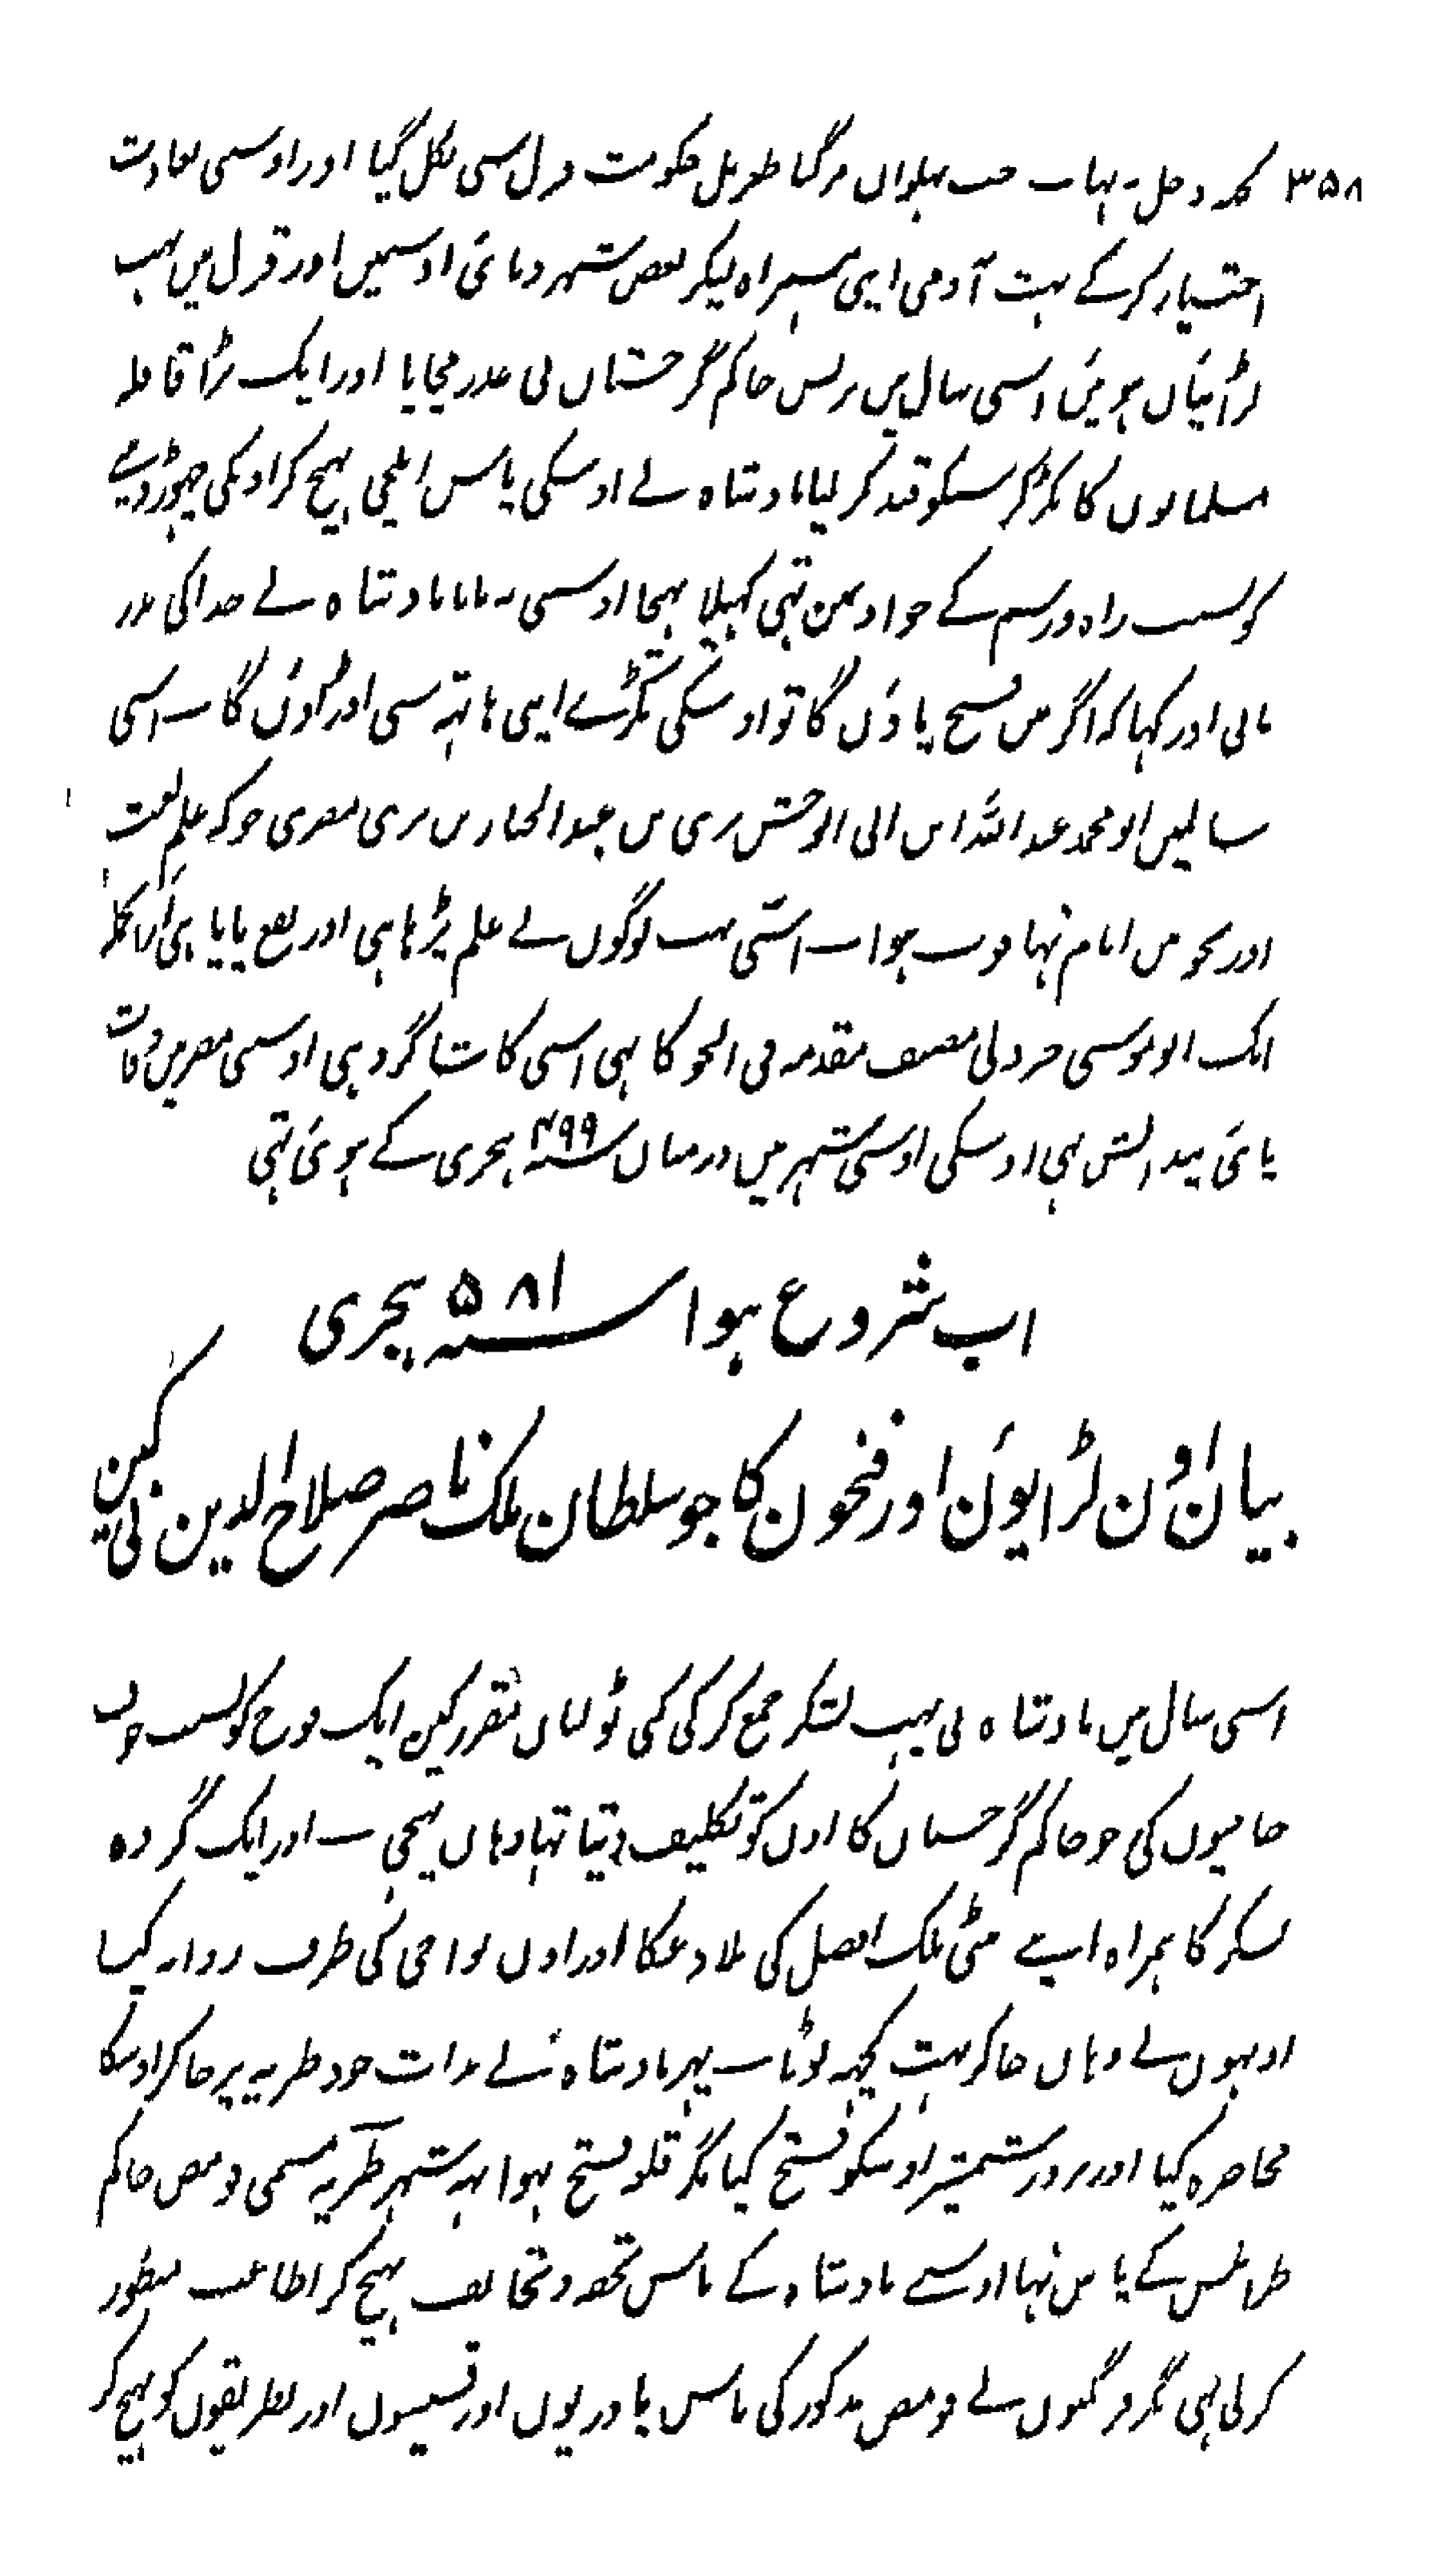 ۳۵۸ کچہ دخل نہ تہا۔ جب پہلوان مرگیا طغریل حکومت قزل سی نکل گیا اور اوسسی بغاوت
اختیار کرکے بہت آدمی اپنی ہمراہ لیکر بعض شہر دبائی اوسمیں اور قزل میں بہت
لڑائیاں ہوئیں اسی سال میں برنس حاکم کرک نی غدر مچایا اور ایک بڑا قافلہ
مسلمانوں کا پکڑ کر سبکو قید کر لیا بادشاہ نے اوسکی پاس ایلچی بھیج کر اونکی چھوڑ دینے
کو بسبب راہ و رسم کے جو اون میں تہی کہلا بہیجا اوسسی نہ مانا بادشاہ نے خدا کی نذر
مانی اور کہا کہ اگر میں فتح پاؤں گا تو اوسکی ٹکڑے اپنی ہاتہ سی اوڑاؤں گا۔ اسی
سالمیں ابو محمد عبد اللہ ابن ابی الوحش بری بن عبد الجبار بن بری مصری جو کہ علم لغت
اور نحو میں امام تہا فوت ہوا۔ اسسی بہت لوگوں نے علم پڑہا ہی اور نفع پایا ہی
ایک ابو موسی جزولی مصنف مقدمہ فی النحو کا بہی اسی کا شاگرد ہی اوسسی مصر میں وفات
پائی پیدائش بہی اوسکی اوسی شہر میں درمیان ۴۹۹ سنہ ہجری کے ہوئی تہی
اب شروع ہوا ۵۸۱ سنہ ہجری
بیان اون لڑائیوں اور فتحون کا جو سلطان ملک ناصر صلاح الدین نی کین
اسی سال میں بادشاہ نی بہت لشکر جمع کر کی کئی ٹولیاں مقرر کین ایک فوج کو بسبب خوف
حاجیوں کی جو حاکم کرک کا اون کو تکلیف دیتا تہا وہاں بہیجی۔ اور ایک گروہ
لشکر کا ہمراہ اپنے بیٹی ملک افضل کی بلاد عکا اور اون نواحی کی طرف روانہ کیا
اونہوں نے وہاں جاکر بہت کچہہ لوٹا۔ پہر بادشاہ نے بذات خود طبریہ پر جاکر اوسکا
محاصرہ کیا اور بزور شمشیر اوسکو فتح کیا مگر قلعہ فتح نہوا یہہ شہر طبریہ مسمی قومص حاکم
طرابلس کے پاس تہا اوسنے بادشاہ کے پاس تحفہ و تحائف بہیج کر اطاعت منظور
کر لی تہی مگر فرنگیوں نے قومص مذکور کی پاس پادریوں اور قسیسوں اور بطریقوں کو بہیج کر